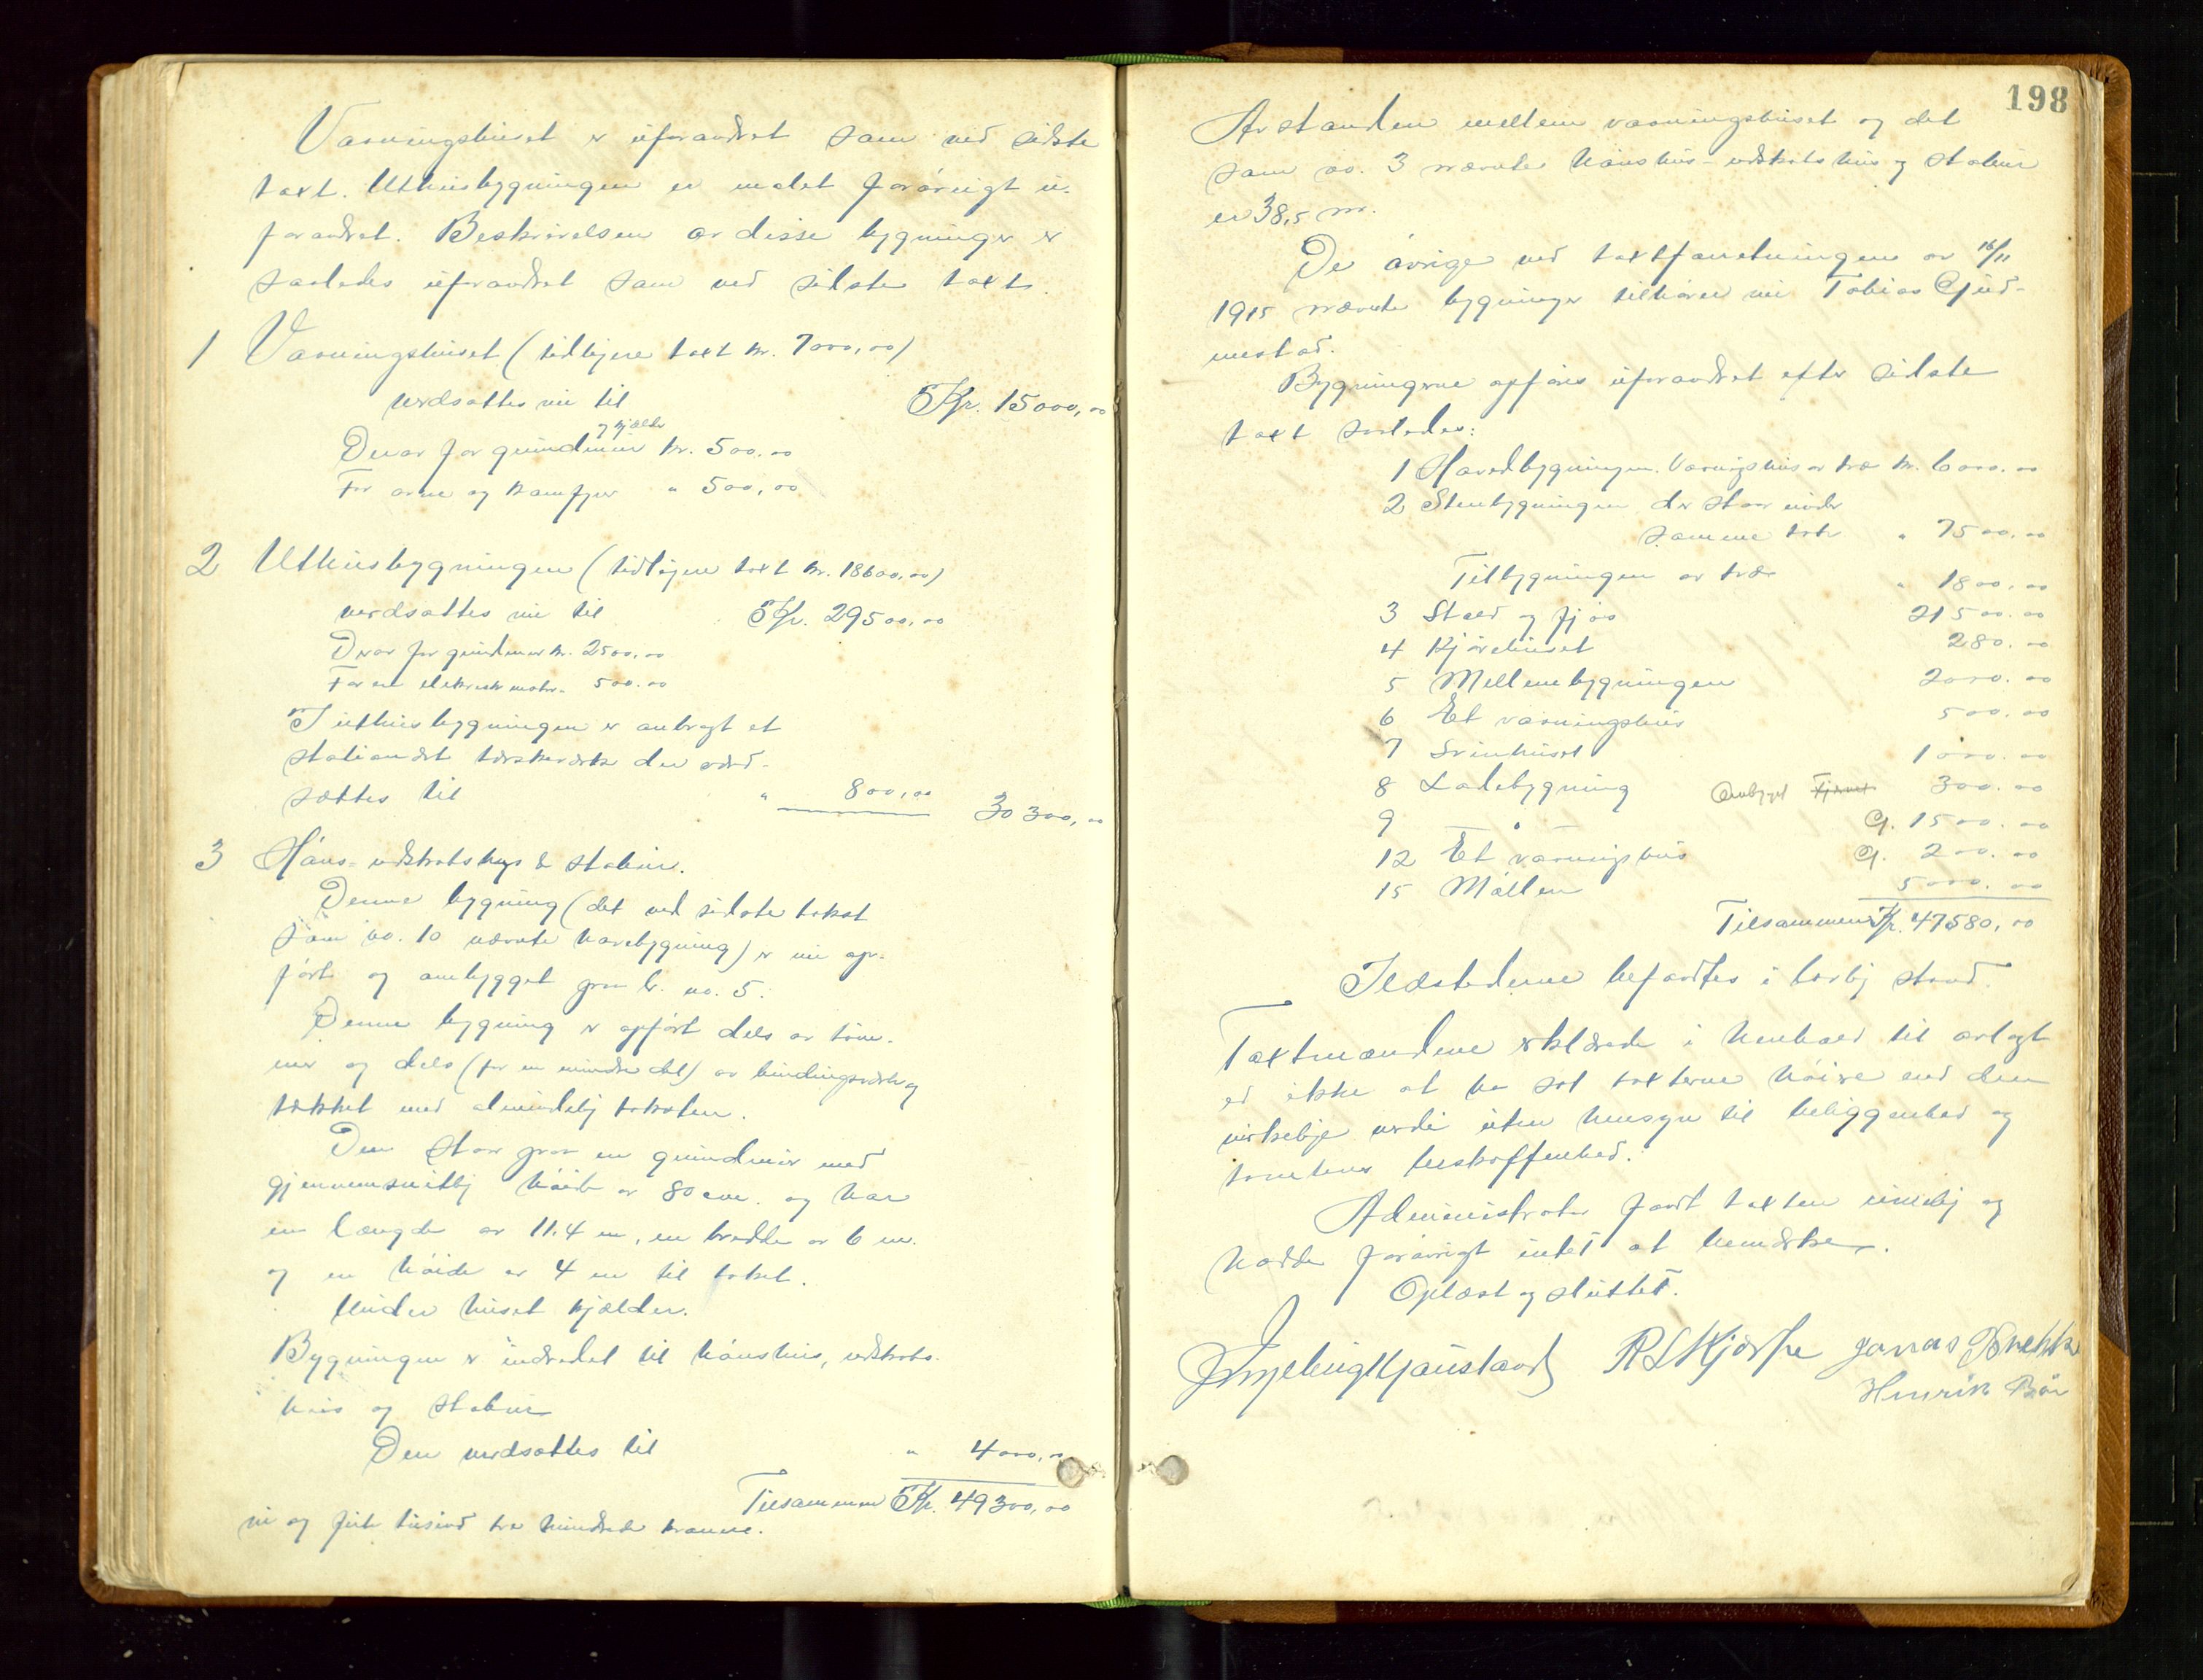 Vaaningshuset er uforandret som ved sidste
taxt. Uthusbygningen er malet forøvrigt u-
forandret. Beskrivelsen av disse bygninger er
saaledes uforandret som ved sidste taxt.
1 Vaaningshuset (tidligere taxt kr. 7000,00)
verdsættes nu til Kr. 15000,00
og kjælder
Derav for grundmur kr. 500.00
For ovne og komfyr " 500,00
2 Uthusbygningen (tidligere taxt kr. 18600,00)
verdsættes nu til Kr. 29500,00
Derav for grundmur kr. 2500,00
For en elektrisk motor " 500.00
I uthusbygningen er anbragt et
stationært tærskeværk der værd-
sættes til " 800,00 30300,00
3 Høns- vedskotshus & stabur.
Denne bygning (det ved sidste takst
som no. 10 nævnte havebygning) er nu op-
ført og ombygget paa b. no. 5.
Denne bygning er opført dels av tøm-
mer og dels (for en mindre del) av bindingsværk og
tækket med almindelig taksten.
Den staar paa en grundmur med
gjennemsnitlig høide av 80 cm. og har
en længde av 11.4 m, en bredde av 6 m.
og en høide av 4 m til taket.
Under huset kjælder.
Bygningen er indredet til hønshus, vedskots-
hus og stabur
Den verdsættes til " 4000,00
Tilsammen Kr. 49300,00
ni og firti tusind tre hundrede kroner.
198
Avstanden mellem vaaningshuset og det
som no. 3 nævnte hønshus- vedskotshus og stabur
er 38,5 m.
De øvrige ved taxtforretningen av 16/11
1915 nævnte bygninger tilhører nu Tobias Gud-
mestad.
Bygningerne opføres uforandret efter sidste
taxt saaledes:
1 Hovedbygningen. Vaaningshus av træ kr. 6000.00
2 Stenbygningen der staar under
samme tak " 7500.00
Tilbygningen av træ " 1800,00
3 Stald og fjøs 21500.00
4 Kjørehuset 280.00
5 Mellembygningen 2000.00
6 Et vaaningshus 500.00
7 Svinhuset 1000.00
8 Ladebygning Ombyget Fjernet 300.00
9 — " — G. 1500.00
12 Et vaaningshus G. 200.00
15 Møllen 5000.00
Tilsammen Kr. 47580,00
Ildstederne befandtes i lovlig stand.
Taxtmændene erklærede i henhold til avlagt
ed ikke at ha sat taxterne høiere end den
virkelige verdi uten hensyn til beliggenhed og
tomtens beskaffenhed.
Administrator fandt taxten rimelig og
hadde forøvrigt intet at bemærke.
Oplæst og sluttet.
R L Kjosse Jonas Brekke
Henrik Bøe